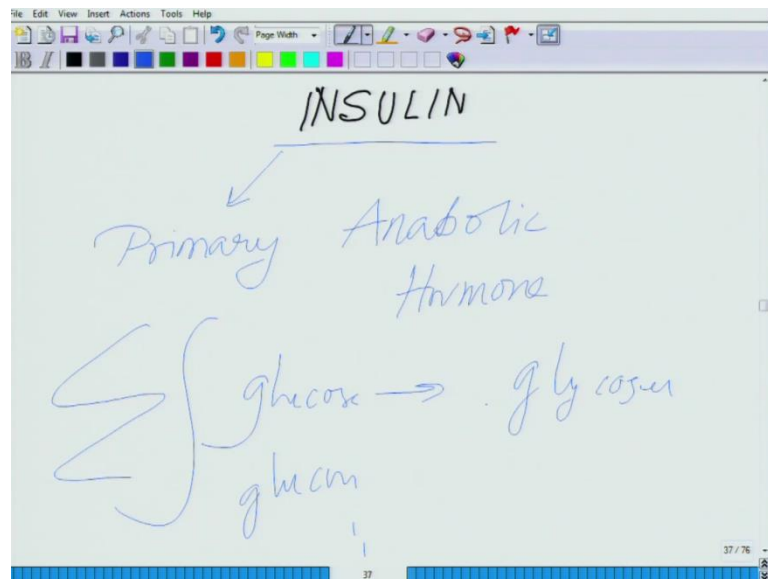 File Edit View Insert Actions Tools Help
Page Width
B I
INSULIN
Primary Anabolic
Hormone
glucose → glycogen
37 / 76
37